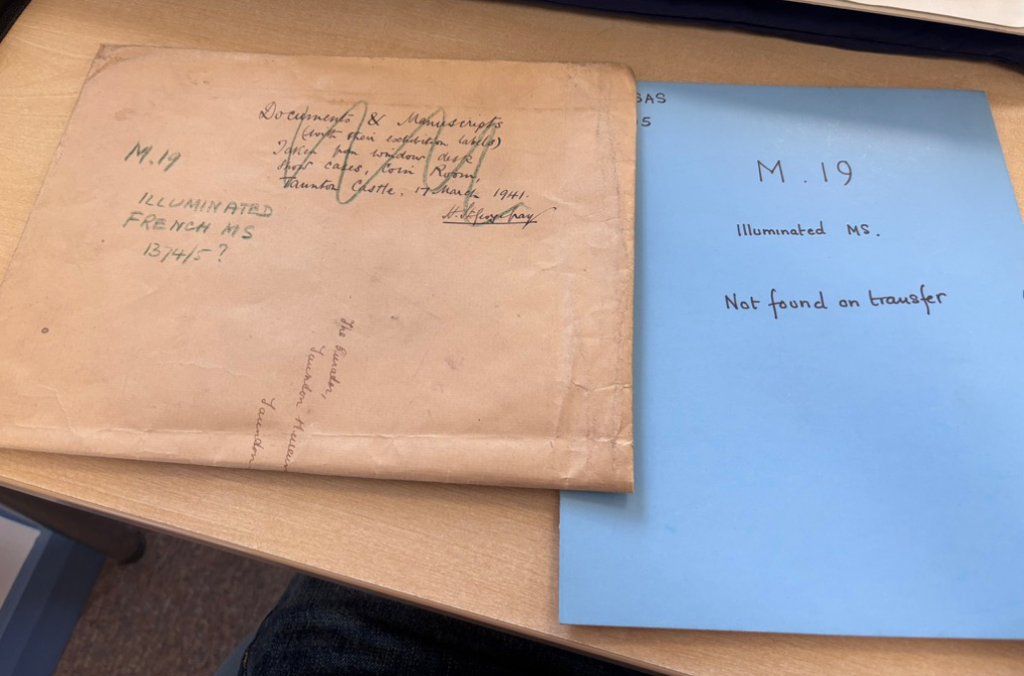 Documents & Manuscripts
(with their exhibition labels)
Taken from window desk
show cases, Coin Room,
Taunton Castle. 17 March 1941.
H. St George Gray
M.19
ILLUMINATED
FRENCH MS
1374/5?
The Curator,
Taunton Museum
Taunton
SAS
5
M.19
Illuminated MS.
Not found on transfer